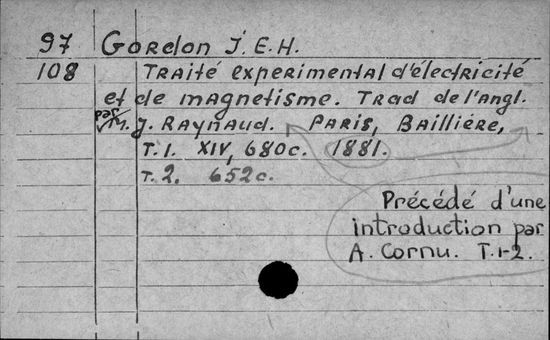 97 Gordon J. E. H.
108 Traité experimental d'électricité
et de magnetisme. Trad de l'angl.
par M. J. Raynaud. Paris, Baillière,
T. 1. XIV, 680c. 1881.
T. 2. 652c.
Précédé d'une
introduction par
A. Cornu. T. 1-2.